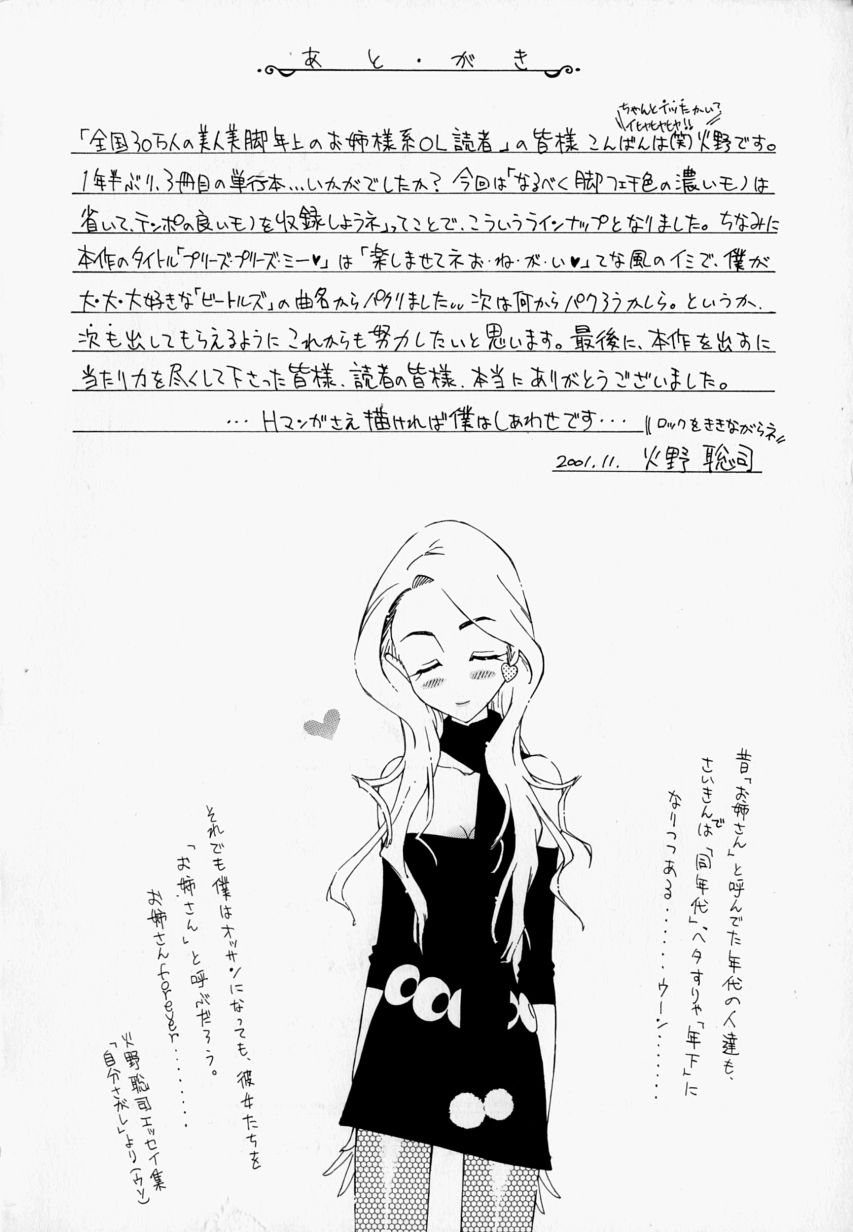 あと・がき
ちゃんと
「全国30万人の美人美脚年上のお姉様系OL読者」の皆様 こんばんは(笑)火野です。
1年半ぶり、3冊目の単行本…いかがでしたか？ 今回は「なるべく脚フェチ色の濃いモノは
省いて、テンポの良いモノを収録しようネ」ってことで、こういうラインナップとなりました。ちなみに
本作のタイトル「プリーズ・プリーズ・ミー♥」は「楽しませてネお・ね・が・い♥」てな風のイミで、僕が
大・大・大好きな「ビートルズ」の曲名からパクりました。次は何からパクろうかしら。というか、
次も出してもらえるように これからも努力したいと思います。最後に、本作を出すに
当たり力を尽くして下さった皆様、読者の皆様、本当にありがとうございました。
…Hマンガさえ描ければ僕はしあわせです… \\ロックをききながらネ//
2001.11. 火野 聡司
昔「お姉さん」と呼んでた年代の人達も、
さいきんでは「同年代」、ヘタすりゃ「年下」に
なりつつある……ウーン……
それでも僕はオッサンになっても、彼女たちを
「お姉さん」と呼ぶだろう。
お姉さんforever………
火野聡司エッセイ集
「自分さがし」より(ウソ)